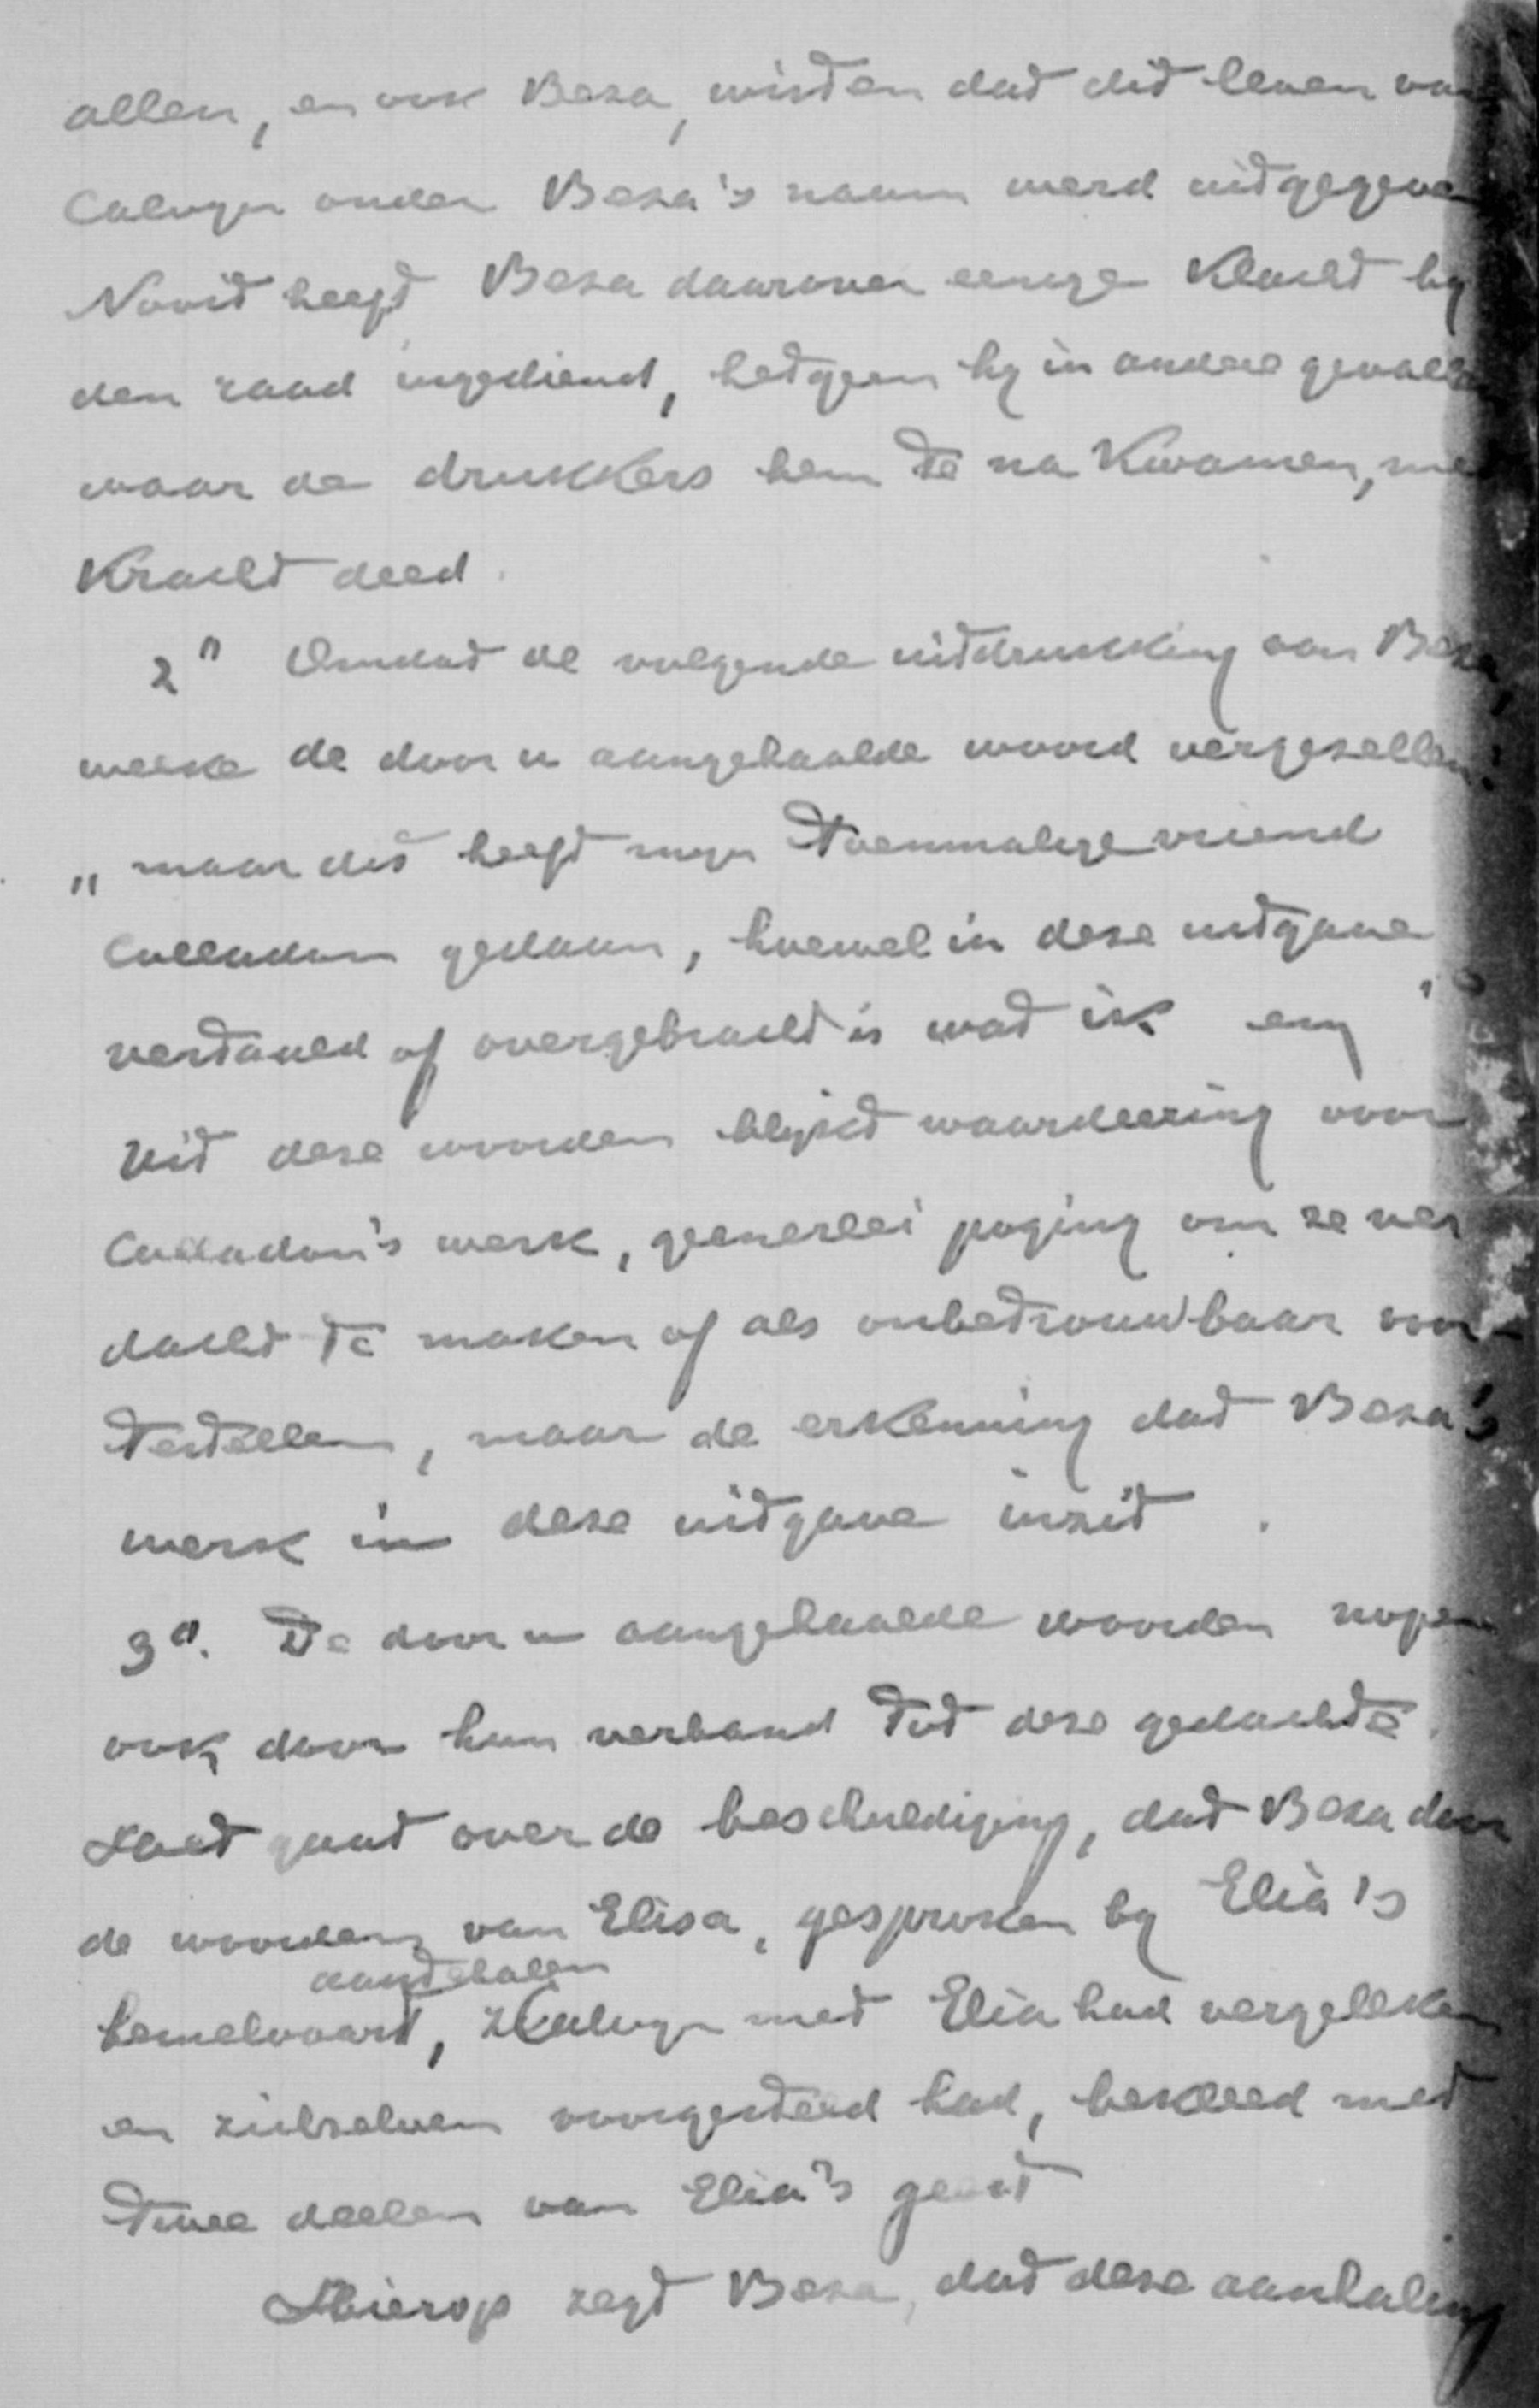 allen, en ook Beza, wisten dat dit leven van
Calvyn onder Beza's naam werd uitgegeven
Nooit heeft Beza daarover eenige klacht by
den raad ingediend, hetgeen hy in andere gevallen
waar de drukkers hem te na kwamen, met
kracht deed.
2° Omdat de volgende uitdrukking van Beza,
welke de door u aangehaalde woord vergezellen:
„maar dit heeft myn toenmalige vriend
Colladon gedaan, hoewel in deze uitgave
vertaald of overgebracht is wat ik en"
Uit deze woorden blykt waardeering voor
Colladon's werk, geenerlei poging om ze ver
dacht te maken of als onbetrouwbaar voor-
testellen, maar de erkenning dat Beza's
werk in deze uitgave inzit.
3°. De door u aangehaalde woorden nopen
ook door hun verband tot deze gedachte.
Het gaat over de beschuldiging, dat Beza door
de woorden van Elisa, gesproken by Elia's
aantehalen
hemelvaart, Calvyn met Elia had vergeleken
en zichzelven voorgesteld had, bekleed met
twee deelen van Elia's geest
Hierop zegt Beza, dat deze aanhaling